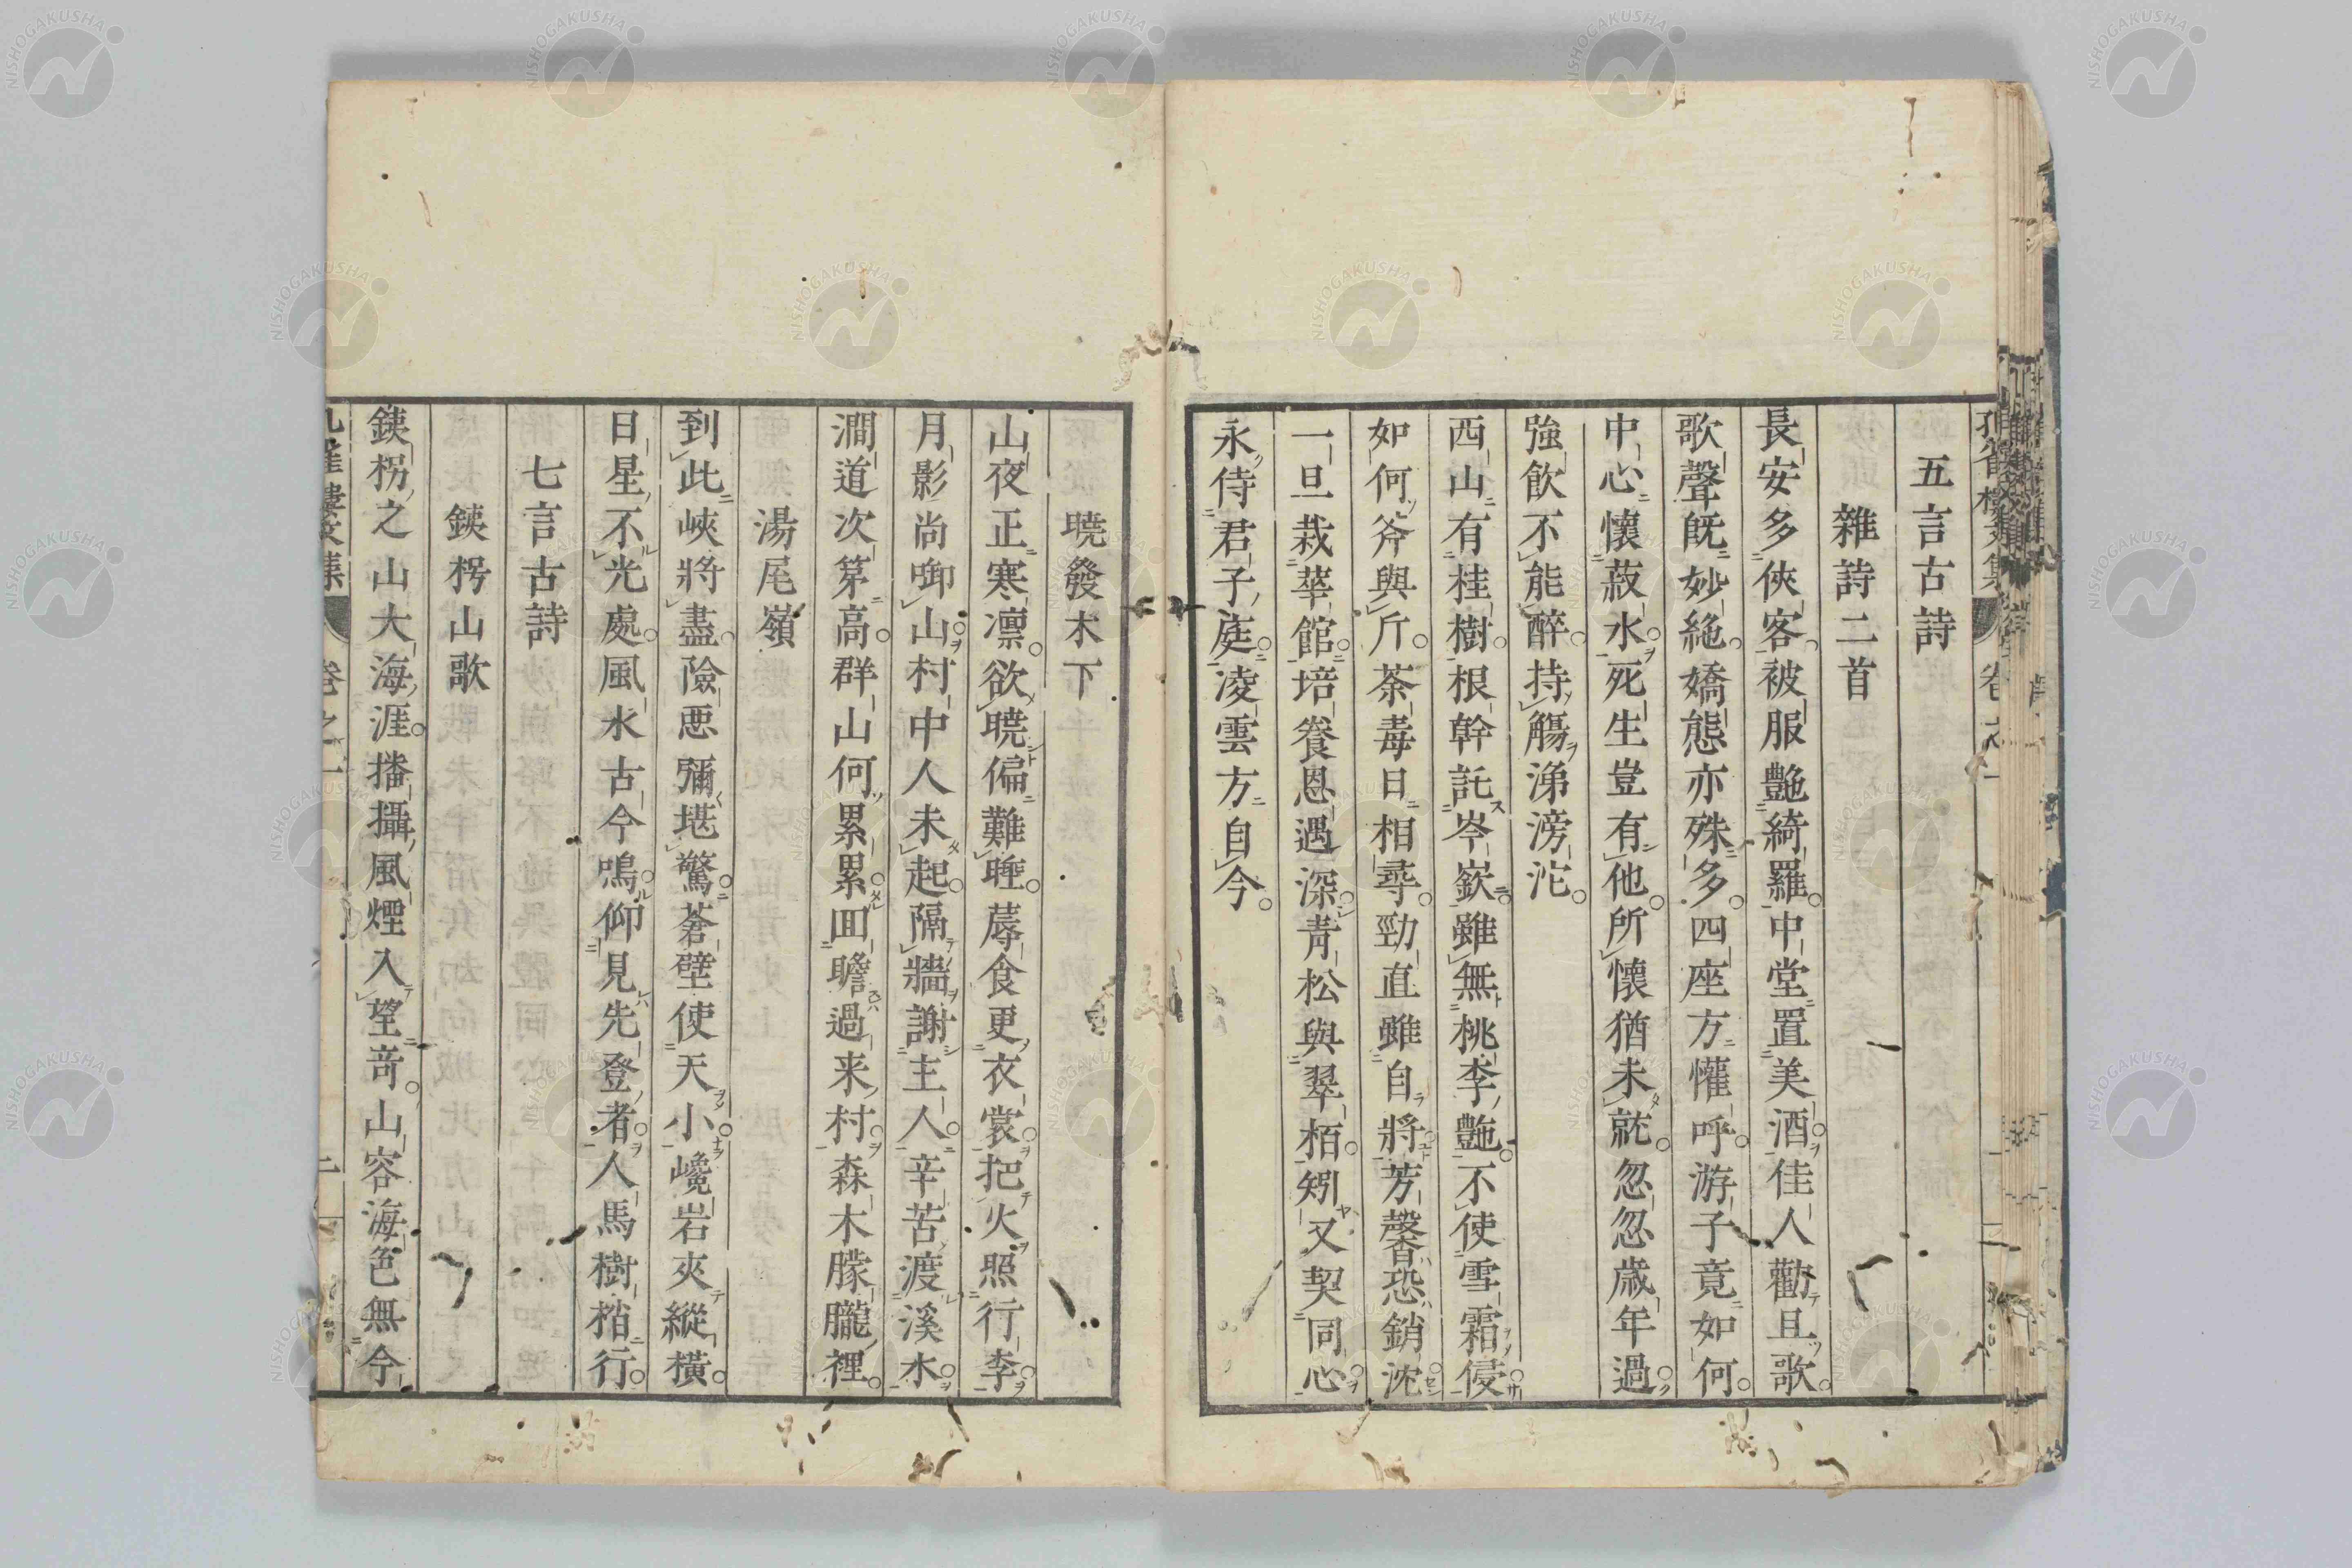 五言古詩
雜詩二首
長安多俠客被服艷綺羅中堂置美酒佳人勸且歌
歌聲旣妙絶嬌態亦殊多四座方懽呼游子竟如何
中心懷菽水死生豈有他所懷猶未就忽忽歳年過
強飮不能醉持觴涕滂沱
西山有桂樹根幹託岑嶔雖無桃李艷不使雪霜侵
如何斧與斤荼毒日相尋勁直雖自將芳馨恐銷沈
一旦栽華館培養恩遇深靑松與翠栢矧又契同心
永侍君子庭凌雲方自今
曉發木下
山夜正寒凛欲曉偏難睡蓐食更衣裳把火照行李
月影尚啣山村中人未起隔牆謝主人辛苦渡溪水
澗道次第高群山何累累囬瞻過来村森木朦朧裡
湯尾嶺
到此峽將盡險惡彌堪驚蒼壁使天小巉岩夾縱橫
日星不光處風水古今鳴仰見先登者人馬樹梢行
七言古詩
鐵枴山歌
鐵枴之山大海涯播攝風煙入望竒山容海色無今
孔雀樓文集 卷之一 二